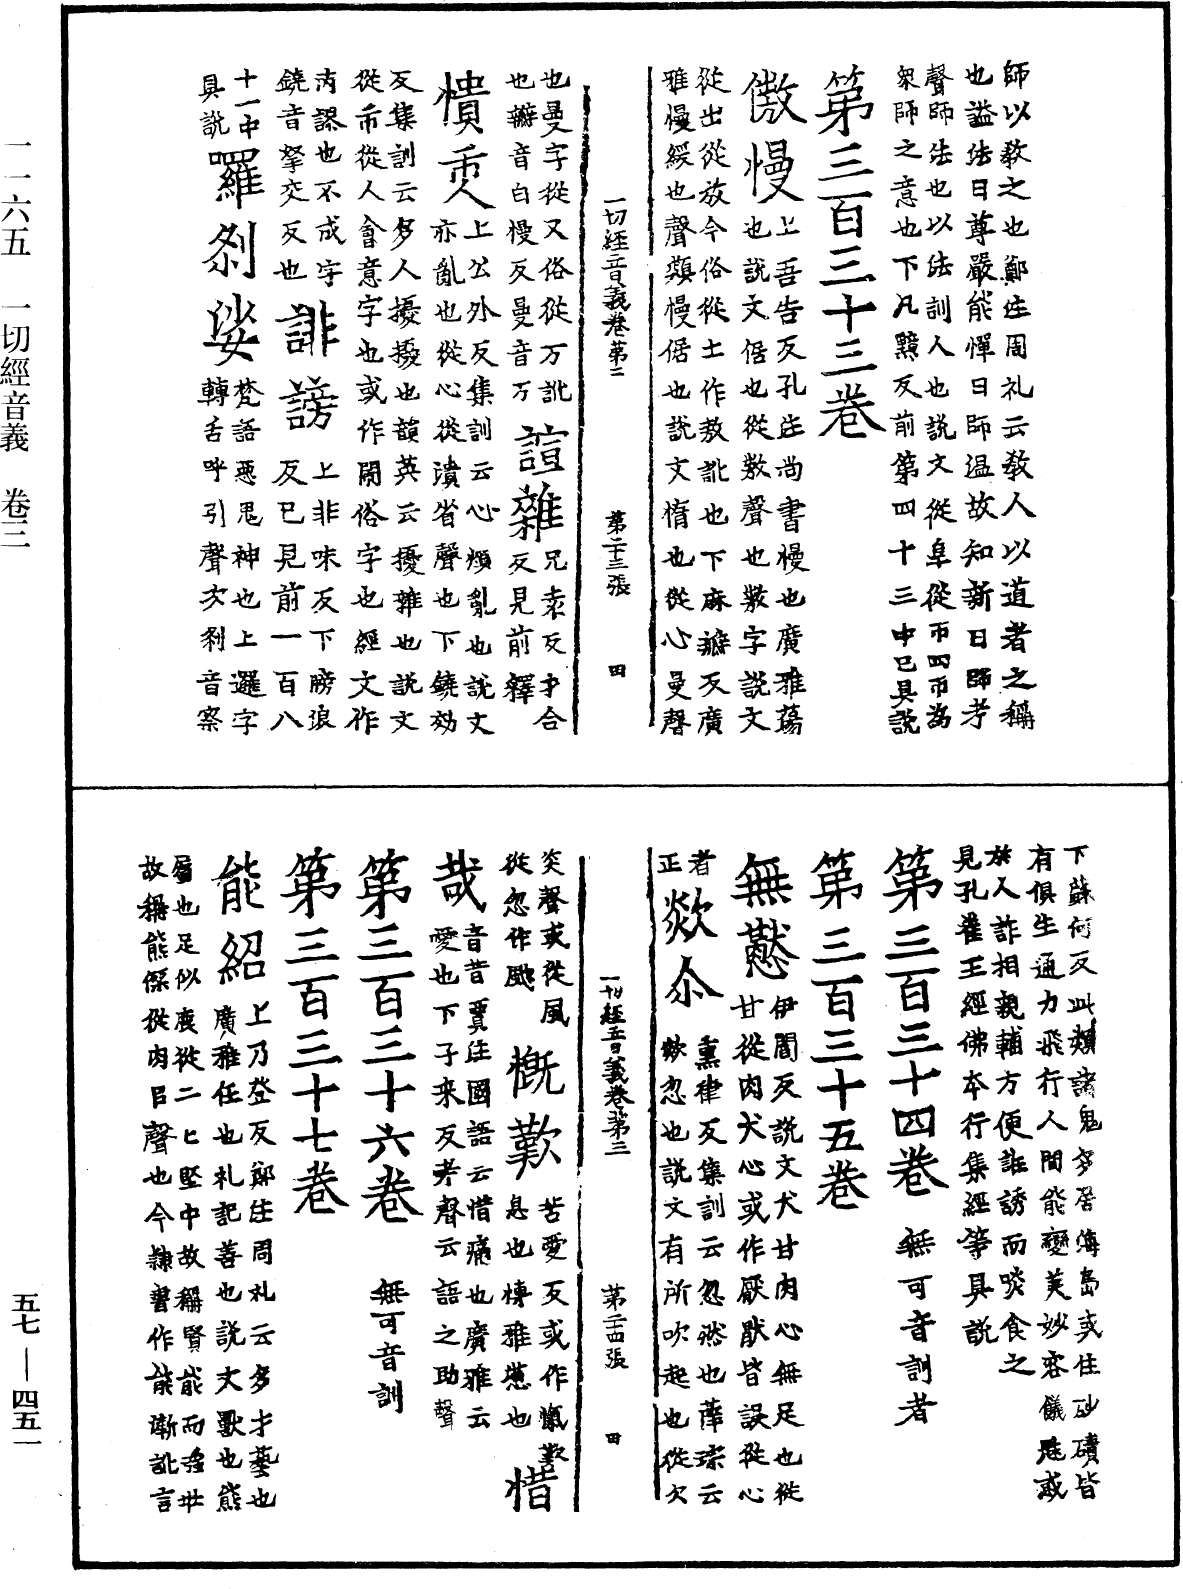 師以教之也鄭注周礼云教人以道者之稱
也謚法曰尊嚴能憚曰師温故知新曰師考
聲師法也以法訓人也說文從𠂤從帀四帀為
衆師之意也下凡黠反前第四十三中已具說
第三百三十三卷
傲慢上吾告反孔注尚書慢也廣雅蕩
也說文倨也從敖聲也敖字說文
從出從放今俗從土作敖訛也下麻瓣反廣
雅慢緩也聲類慢倨也說文惰也從心曼聲
一切經音義卷第三 第二十三張 四
也曼字從又俗從万訛 諠雜兄袁反下才合
也瓣音白慢反曼音万 反見前釋
憒𠆴上公外反集訓云心煩亂也說文
亦亂也從心從潰省聲也下鐃効
反集訓云多人擾擾也韻英云擾雜也說文
從市從人會意字也或作閙俗字也經文作
丙謬也不成字 誹謗上非味反下膀浪
鐃音拏交反也 反已見前一百八
十一中 羅剎娑梵語惡鬼神也上邏字
具說 轉舌呼引聲次剎音察
下蘇何反此類諸鬼多居海島或住砂磧皆
有俱生通力飛行人間能變美妙容儀魅惑
於人詐相親輔方便誑誘而啖食之
見孔雀王經佛本行集經等具說
第三百三十四卷 無可音訓者
第三百三十五卷
無猒伊閻反說文犬甘肉心無足也從
甘從肉犬心或作厭猒皆誤從心
者 欻尒熏律反集訓云忽然也薛琮云
正 欻忽也說文有所吹起也從欠
一切經音義卷第三 第二十四張 四
炎聲或從風 慨歎苦愛反或作愾歎
從忽作䬍 息也博雅慨也 惜
哉音昔賈注國語云惜痛也廣雅云
愛也下子來反考聲云語之助聲
第三百三十六卷 無可音訓
第三百三十七卷
能紹上乃登反鄭注周礼云多才藝也
廣雅任也礼記善也說文獸也熊
屬也足似鹿從二匕堅中故稱賢能而强壯
故稱能傑從肉㠯聲也今隸書作能漸訛言
一一六五 一切經音義 卷三
五七—四五一